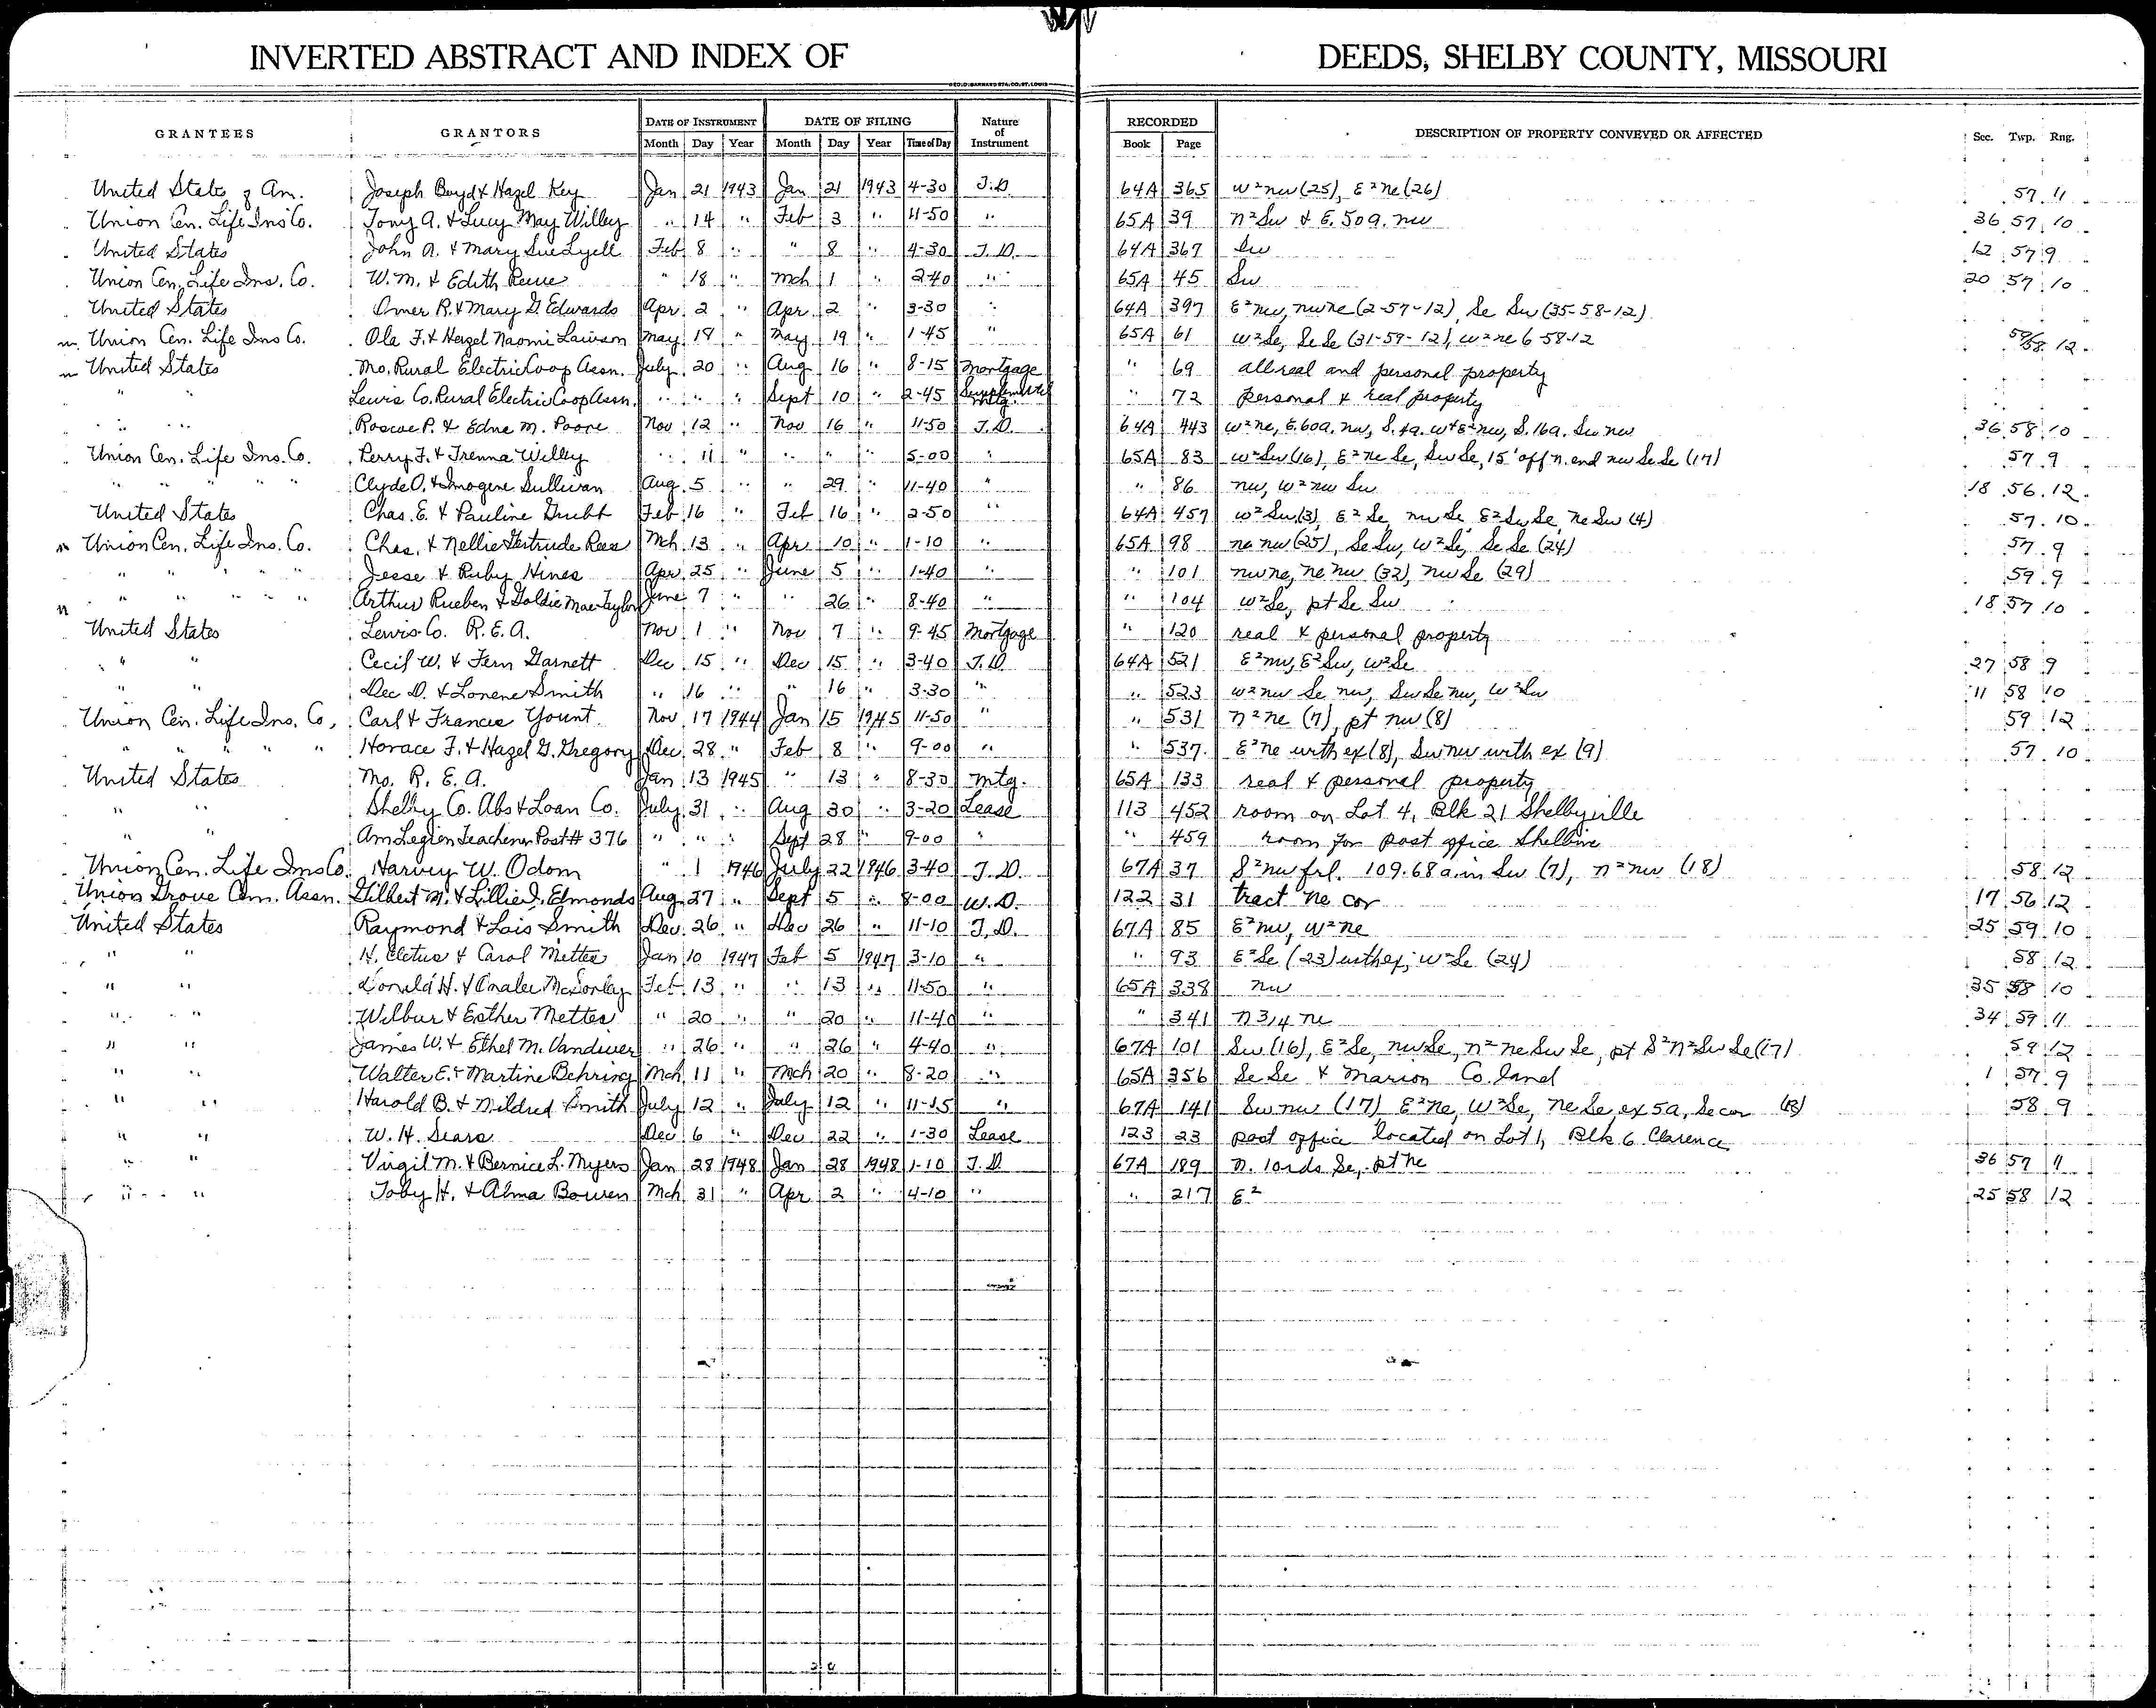 INVERTED ABSTRACT AND INDEX OF DEEDS, SHELBY COUNTY, MISSOURI
GRANTEES GRANTORS DATE OF INSTRUMENT DATE OF FILING Nature of Instrument RECORDED DESCRIPTION OF PROPERTY CONVEYED OR AFFECTED Sec. Twp. Rng.
Month Day Year Month Day Year Time of Day Book Page
United States of Am. Joseph Boyd & Hazel Key Jan 21 1943 Jan 21 1943 4-30 T.D. 64A 365 W²nw (25), E²ne (26) 57 11
Union Cen. Life Ins Co. Tony A. & Lucy May Willey " 14 " Feb 3 " 11-50 " 65A 39 n²Sw & E. 50a. nw 36 57 10
United States John A. & Mary Sue Lyell Feb 8 " " 8 " 4-30 T.D. 64A 367 Sw 12 57 9
Union Cen. Life Ins. Co. W.M. & Edith " 18 " Mch 1 " 2-40 " 65A 45 Sw 20 57 10
United States Omer R. & Mary G. Edwards Apr 2 " Apr 2 " 3-30 " 64A 397 E²nw, nwne (2-57-12), Se Sw (35-58-12)
Union Cen. Life Ins Co. Ola F. & Hazel Naomi Lawson May 18 " May 19 " 1-45 " 65A 61 W²Se, Se Se (31-59-12), W²ne 6-58-12 59/58 12
United States Mo. Rural Electric Coop Assn. July 20 " Aug 16 " 8-15 Mortgage " 69 all real and personal property
" " Lewis Co. Rural Electric Coop Assn. " " " Sept 10 " 2-45 Supplemental Mtg. " 72 Personal & real property
" " Roscoe P. & Edna M. Poore Nov 12 " Nov 16 " 11-50 T.D. 64A 443 W²ne, E. 60a. nw, S. 16a. Sw nw 36 58 10
Union Cen. Life Ins. Co. Perry F. & Trenna Willey " 11 " " " " 5-00 " 65A 83 W²Sw (16), E²ne Se, Sw Se, 15' off n. end nw Se Se (17) 57 9
" " " " Clyde O. & Imogene Sullivan Aug 5 " " 29 " 11-40 " " 86 nw, W²nw Sw 18 56 12
United States Chas. E. & Pauline Feb 16 " Feb 16 " 2-50 " 64A 457 W²Sw (3), E²Se, nw Se, E²Sw Se, ne Sw (4) 57 10
Union Cen. Life Ins. Co. Chas. & Nellie Gertrude Rees Mch 13 " Apr 10 " 1-10 " 65A 98 ne nw (25), Se Sw, W²Se, Se Se (24) 57 9
" " " " Jesse & Ruby Hines Apr 25 " June 5 " 1-40 " " 101 nwne, ne nw (32), nw Se (29) 59 9
" " " " Arthur Rueben & Goldie Mae Taylor June 7 " " 26 " 8-40 " " 104 W²Se, pt Se Sw 18 57 10
United States Lewis Co. R.E.A. Nov 1 " Nov 7 " 9-45 Mortgage " 120 real & personal property
" " Cecil W. & Fern Garnett Dec 15 " Dec 15 " 3-40 T.D. 64A 521 E²nw, E²Sw, W²Se 27 58 9
" " Dec D. & Lorene Smith " 16 " " 16 " 3-30 " " 523 W²nw Se nw, Sw Se nw, W²Sw 11 58 10
Union Cen. Life Ins. Co. Carl & Frances Yount Nov 17 1944 Jan 15 1945 11-50 " " 531 n²ne (7), pt nw (8) 59 12
" " " " Horace F. & Hazel G. Gregory Dec 28 " Feb 8 " 9-00 " " 537 E²ne with ex (8), Sw nw with ex (9) 57 10
United States Mo. R.E.A. Jan 13 1945 " 13 " 8-30 Mtg. 65A 133 real & personal property
" " Shelby Co. Abs & Loan Co. July 31 " Aug 30 " 3-20 Lease 113 452 room on Lot 4, Blk 21 Shelbyville
" " Am Legion Teachenor Post # 376 " " " Sept 28 " 9-00 " " 459 room for post office Shelbina
Union Cen. Life Ins Co. Harvey W. Odom " 1 1946 July 22 1946 3-40 T.D. 67A 37 S²nw frl. 109.68 a. in Sw (7), n²nw (18) 58 12
Union Grove Cem. Assn. Gilbert M. & Lillie I. Edmonds Aug 27 " Sept 5 " 8-00 W.D. 122 31 tract ne cor 17 56 12
United States Raymond & Lois Smith Dec 26 " Dec 26 " 11-10 T.D. 67A 85 E²nw, W²ne 25 59 10
" " H. Cletus & Carol Mettes Jan 10 1947 Feb 5 1947 3-10 " " 93 E²Se (23) with ex; W²Se (24) 58 12
" " Donald H. & Oralee McSorley Feb 13 " " 13 " 11-50 " 65A 338 nw 35 58 10
" " Wilbur & Esther Mettes " 20 " " 20 " 11-40 " " 341 n 3/4 ne 34 59 11
" " James W. & Ethel M. Vandiver " 26 " " 26 " 4-40 " 67A 101 Sw (16), E²Se, nw Se, n²ne Sw Se, pt S²n²Sw Se (17) 59 12
" " Walter E. & Martine Behring Mch 11 " Mch 20 " 8-20 " 65A 356 Se Se & Marion Co. land 1 57 9
" " Harold B. & Mildred Smith July 12 " July 12 " 11-15 " 67A 141 Sw nw (17) E²ne, W²Se, ne Se, ex 5a, Se cor (18) 58 9
" " W. H. Sears Dec 6 " Dec 22 " 1-30 Lease 123 23 post office located on Lot 1, Blk 6 Clarence
" " Virgil M. & Bernice L. Myers Jan 28 1948 Jan 28 1948 1-10 T.D. 67A 189 n. 10 rds Se, pt ne 36 57 11
" " Toby H. & Alma Bowen Mch 31 " Apr 2 " 4-10 " " 217 E² 25 58 12